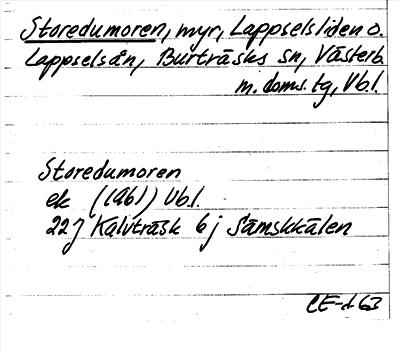 Storedumoren, myr, Lappselsliden o.
Lappselsån, Burträsks sn, Västerb.
m. doms. tg, Vb.l.
Storedumoren
ek (1961) Vb.l.
22 J Kalvträsk 6 j Sämskkälen
CE-t 63